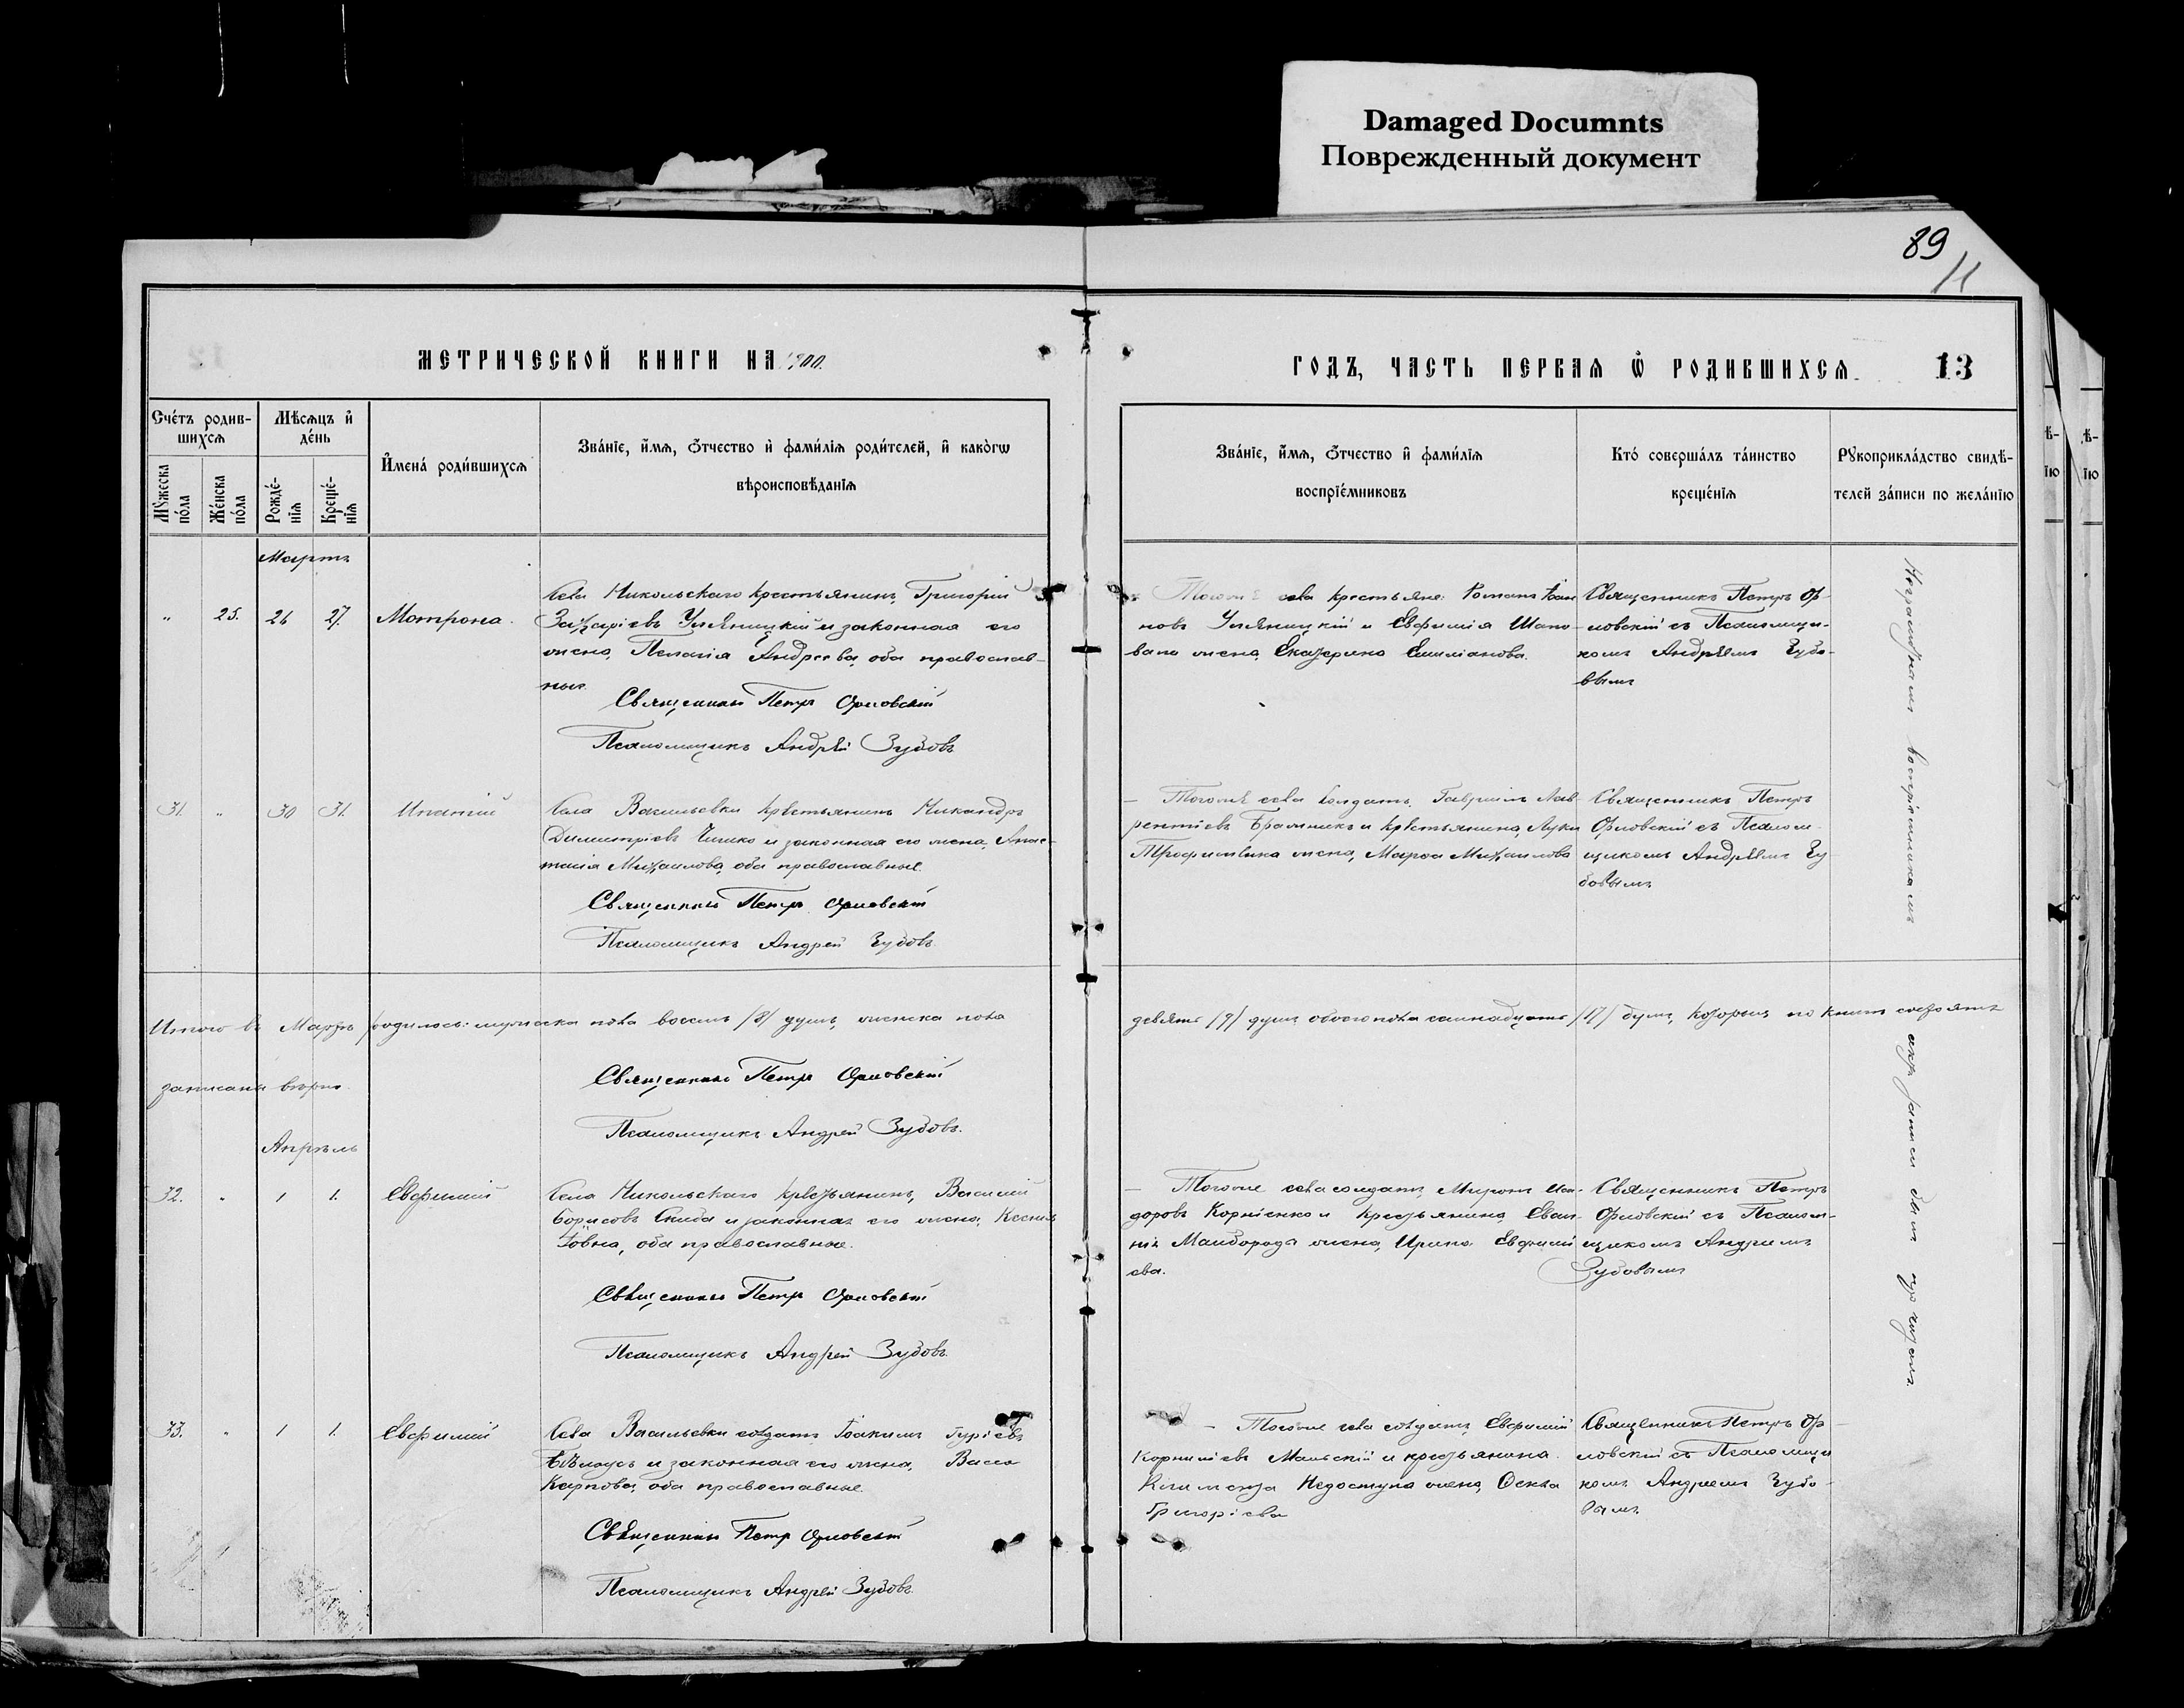 Damaged Documnts
Поврежденный документ
89
11
МЕТРИЧЕСКОЙ КНИГИ НА 1900.
ГОДЪ, ЧАСТЬ ПЕРВАЯ Ѡ РОДИВШИХСЯ
13
Сче́тъ родив-
шихсѧ
Мѣсѧцъ и
де́нь
Мꙋжеска
по́ла
Же́нска
по́ла
Рожде́-
нїѧ
Креще́-
нїѧ
И҆мена́ роди́вшихсѧ
Зва́нїе, и҆́мѧ, ѻ҆́тчество и҆ фами́лїѧ роди́телей, и҆ како́гѡ
вѣроисповѣ́данїѧ
Зва́нїе, и҆́мѧ, ѻ҆́тчество и҆ фами́лїѧ
воспрїе́мниковъ
Кто́ соверша́лъ та́инство
креще́нїѧ
Рꙋкоприкла́дство свидѣ́-
телей за́писи по жела́нїю
Мартъ
" 25. 26 27. Мотрона.
Села Никольскаго крестьянинъ, Григорій
Захаріевъ Ульяницкій и законная его
жена, Пелагія Андреева, оба православ-
ные.
Священникъ Петръ Орловскій
Псаломщикъ Андрей Зубовъ
Тогоже села крестьяне: Романъ Іоан
новъ Ульяницкій и Евфимія Шапо-
вала жена, Екатерина Емиліанова.
Священникъ Петръ Ор-
ловскій съ Псаломщи-
комъ Андреемъ Зубо-
вымъ
31. " 30 31. Ипатій
Села Васильевки крестьянинъ Никандръ
Димитріевъ и законная его жена, Анас-
тасія Михаилова, оба православные.
Священникъ Петръ Орловскій
Псаломщикъ Андрей Зубовъ.
Тогоже села солдатъ, Гавріилъ Лав-
рентіевъ и крестьянина, Луки
жена, Марѳа Михаилова
Священникъ Петръ
Орловскій съ Псалом-
щикомъ Андреемъ Зу-
бовымъ
Итого въ Мартѣ родилось: мужеска пола восемь /8/ душъ, женска пола
девять /9/ душъ обоего пола семнадцать /17/ душъ, которыя по книгѣ состоятъ
записаны вѣрно.
Священникъ Петръ Орловскій
Псаломщикъ Андрей Зубовъ.
Апрѣль
32. " 1 1. Евфимій
Села Никольскаго крестьянинъ, Василій
Борисовъ Скиба и законная его жена, Ксенія
оба православные.
Священникъ Петръ Орловскій
Псаломщикъ Андрей Зубовъ.
Тогоже села солдатъ, Миронъ Иси-
доровъ Корніенко и крестьянина, Еван-
Майборода жена, Ирина Евфимі
ева.
Священникъ Петръ
Орловскій съ Псалом-
щикомъ Андреемъ
Зубовымъ
33. " 1 1. Евфимій
Села Васильевки солдатъ, Іоакимъ Гуріевъ
Бѣлоусъ и законная его жена, Васса
Карпова, оба православные.
Священникъ Петръ Орловскій
Псаломщикъ Андрей Зубовъ.
Тогоже села солдатъ, Евфимій
Корниліевъ и крестьянина
Климента Недоступа жена, Ѳекла
Григоріева
Священникъ Петръ Ор-
ловскій съ Псаломщи
комъ Андреемъ Зубо-
вымъ.
Неграмотнымъ воспріемникамъ
актъ записи былъ прочитанъ.